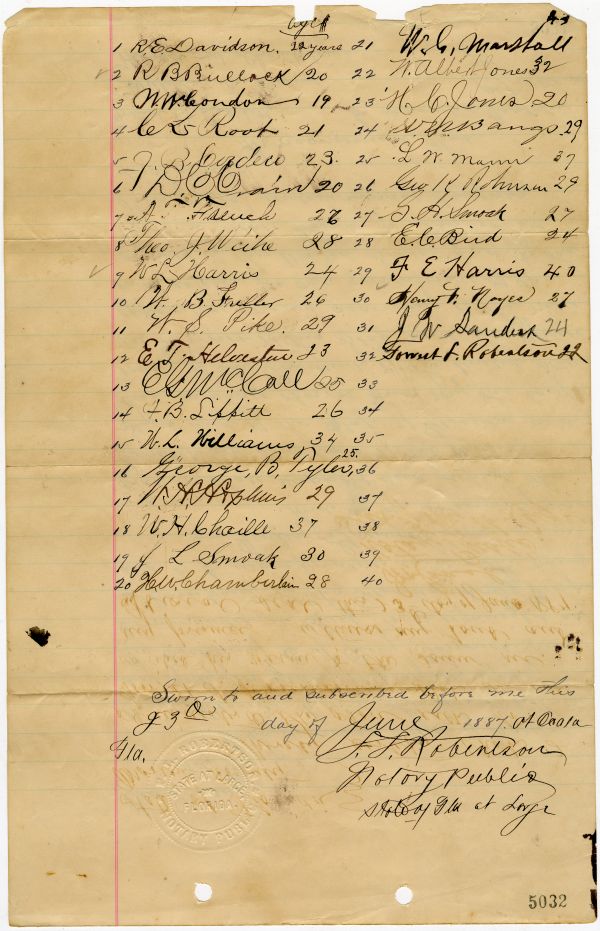 Age
43
1 R. E. Davidson. 19 years 21 W. C. Marshall
2 R B Bullock 20 22 W. Albert Jones 32
3 Condon 19 23 H C Jones 20
4 C Root 21 24 Bangs 29
5 J. B. 23. 25 L W Mann 37
6 D. C. Crain 20 26 Geo K Robinson 29
7 A. T. French 26 27 S. H. Smoak 27
8 Theo J. Weihe 28 28 E C Bird 24
9 W L Harris 24 29 F E Harris 40
10 W. B. Fuller 26 30 Henry F. Noyes 27
11 W. S. Pike. 29 31 J W Sandest 24
12 E. T. Helvenston 23 32 S. Robertson 22
13 McCall 25 33
14 F. B. Lippitt 26 34
15 W. L. Williams 34 35
16 George, B. Tyler, 25. 36
17 Hopkins 29 37
18 W. H. Chaille 37 38
19 J L Smoak 30 39
20 H. W. Chamberlin 28 40
Sworn to and subscribed before me this
day of June 1887. at Ocala
Fla.
F. F. Robertson
Notary Public
State of Fla at Large
ROBERTSON
STATE AT LARGE
FLORIDA.
NOTARY PUBLIC
5032